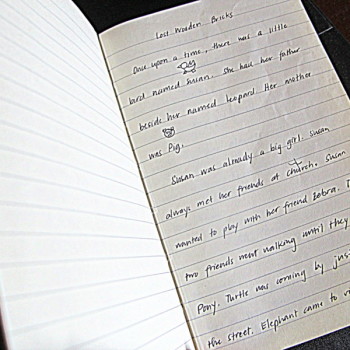 Lost Wooden Bricks
Once upon a time, there was a little
bird named Susan. She had her father
beside her named Leopard. Her mother
was Pig.
Susan was already a big girl. Susan
always met her friends at church. Susan
wanted to play with her friend Zebra.
two friends went walking until they
Pony. Turtle was coming by just
the street. Elephant came to